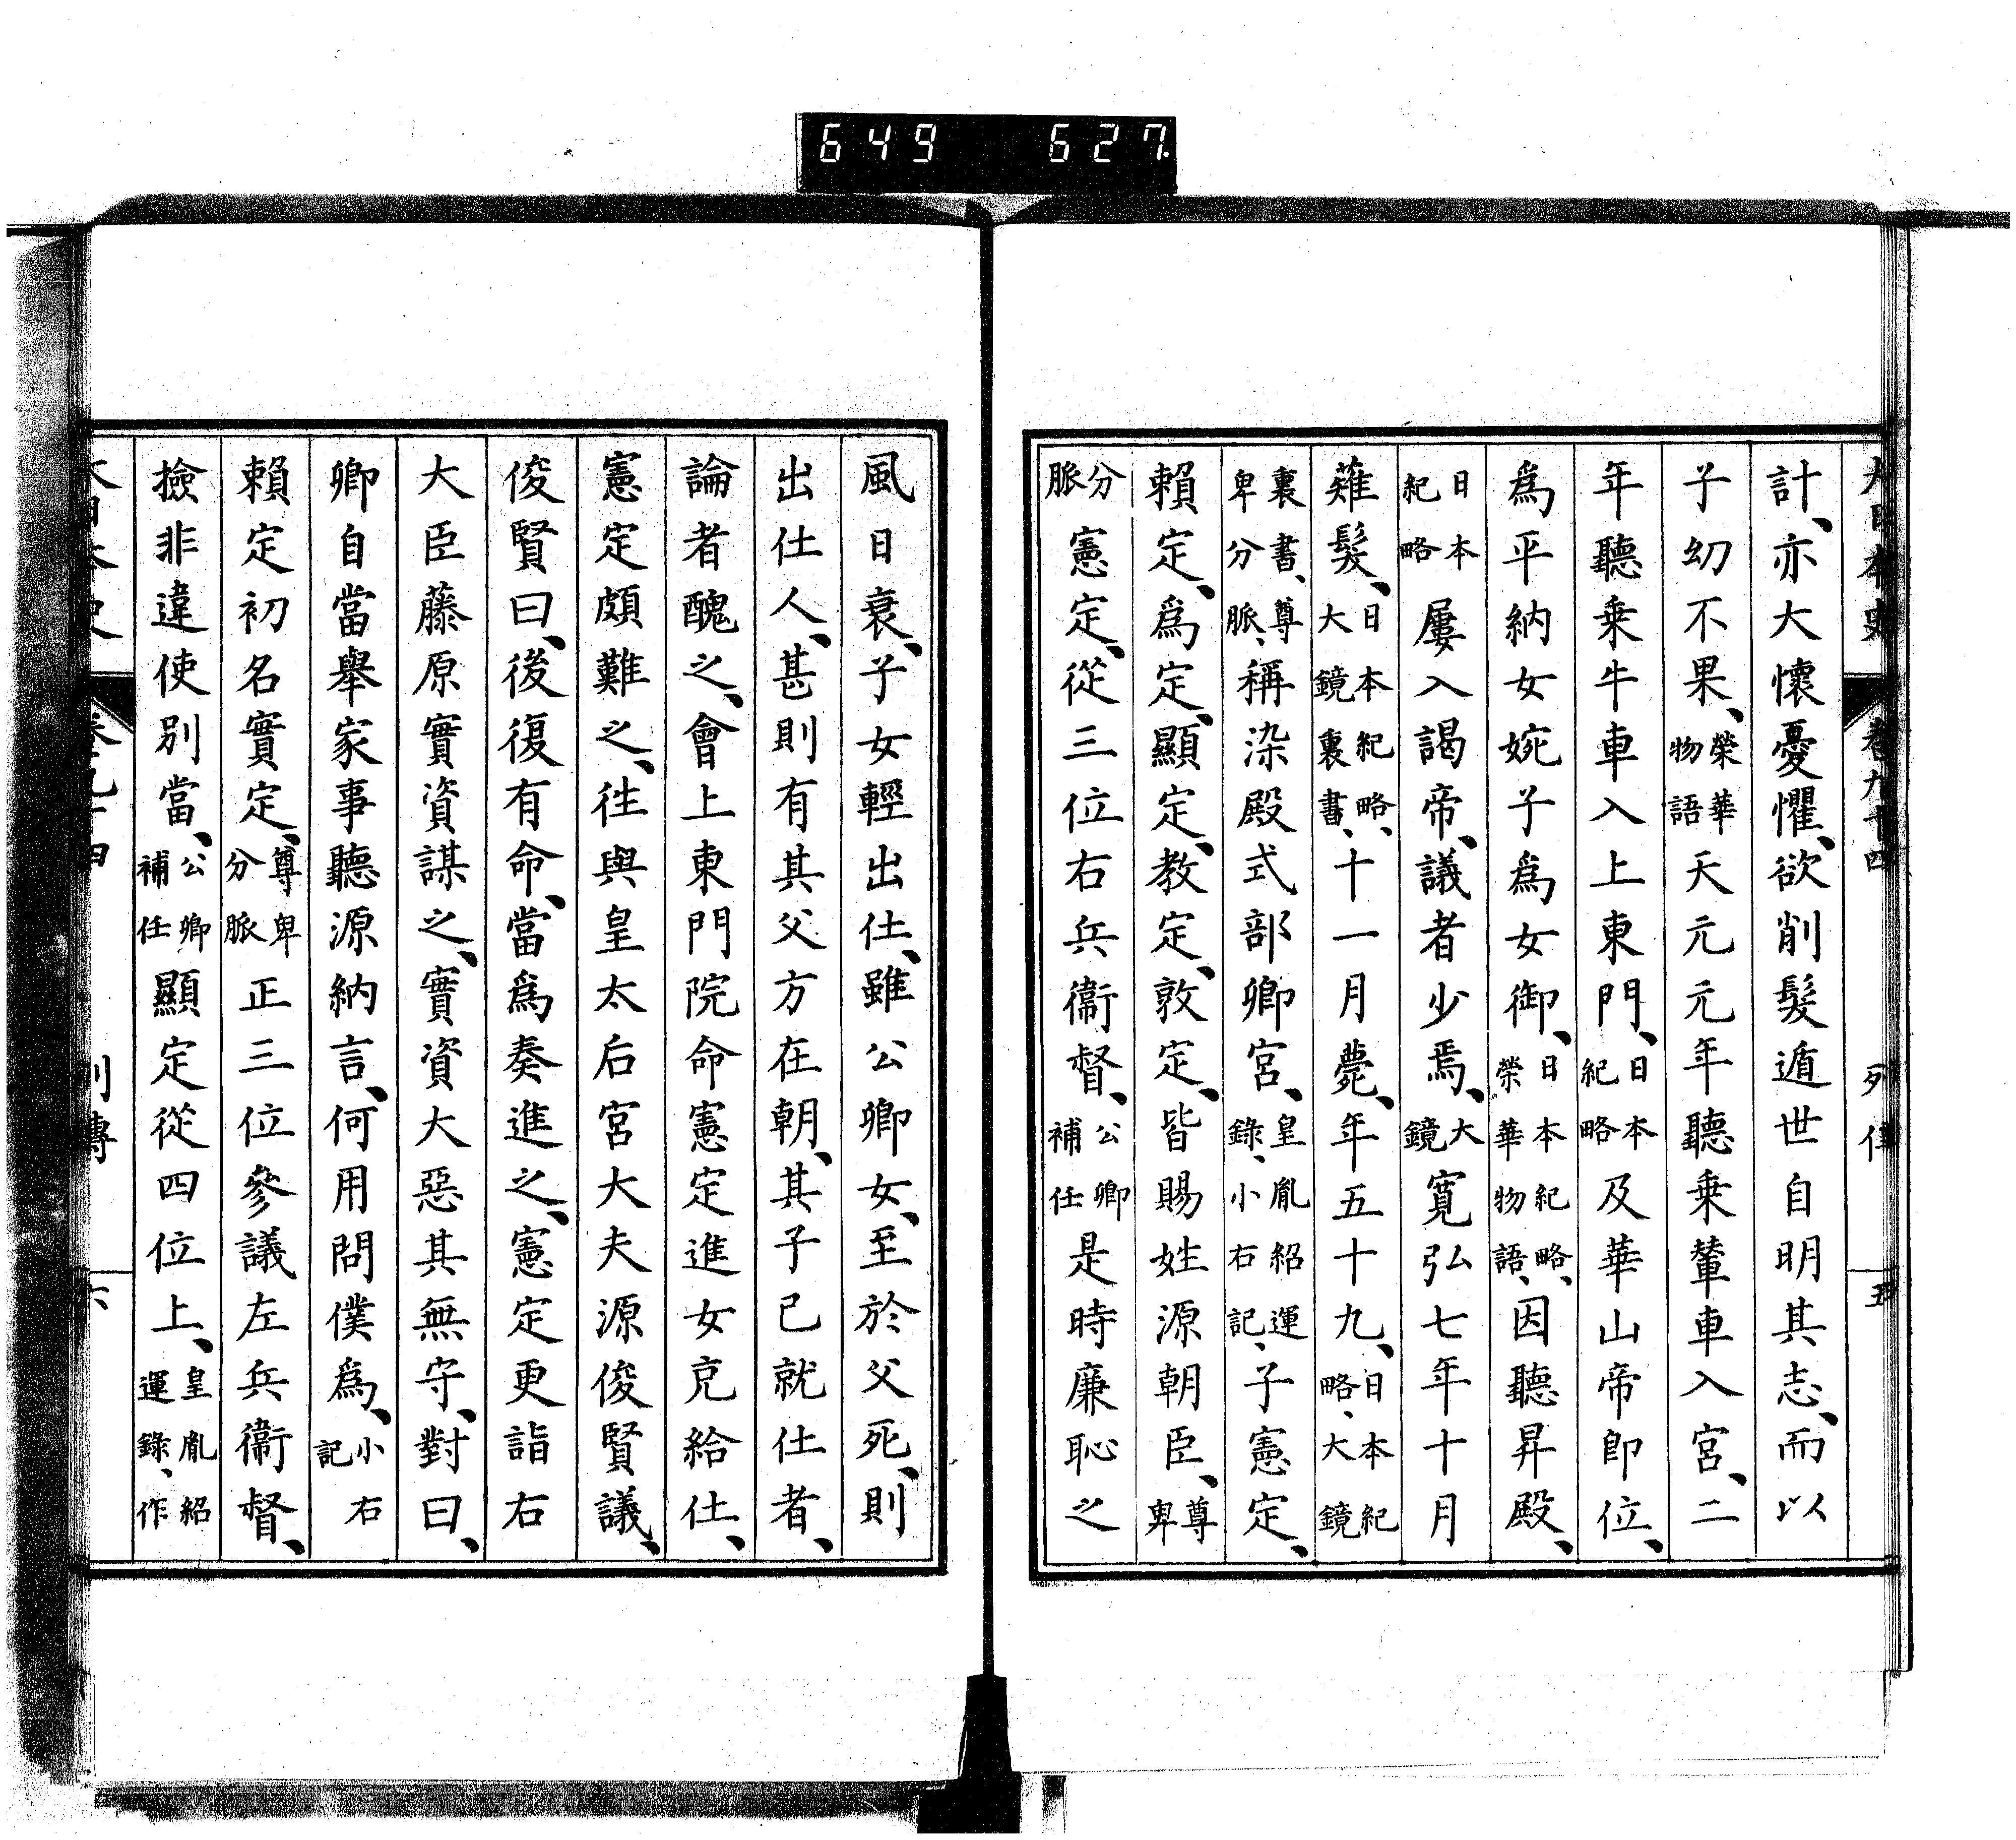 649 627.
大日本史 卷九十四 列傳 五
計、亦大懷憂懼、欲削髮遁世自明其志、而以
子幼不果、榮華物語天元元年聽乗輦車入宮、二
年聽乗牛車入上東門、日本紀略及華山帝即位、
爲平納女婉子爲女御、日本紀略、榮華物語、因聽昇殿、
日本紀略屢入謁帝、議者少焉、大鏡寛弘七年十月
薙髮、日本紀略、大鏡裏書、十一月薨、年五十九、日本紀略、大鏡
裏書、尊卑分脈、稱染殿式部卿宮、皇胤紹運錄、小右記、子憲定、
賴定、爲定、顯定、教定、敦定、皆賜姓源朝臣、尊卑
分脈憲定、從三位右兵衞督、公卿補任是時廉恥之
風日衰、子女輕出仕、雖公卿女、至於父死、則
出仕人、甚則有其父方在朝、其子已就仕者、
論者醜之、會上東門院命憲定進女克給仕、
憲定頗難之、徃與皇太后宮大夫源俊賢議、
俊賢曰、後復有命、當爲奏進之、憲定更詣右
大臣藤原實資謀之、實資大惡其無守、對曰、
卿自當舉家事聽源納言、何用問僕爲、小右記
賴定初名實定、尊卑分脈正三位參議左兵衞督、
撿非違使別當、公卿補任顯定從四位上、皇胤紹運錄、作
大日本史 卷九十四 列傳 六